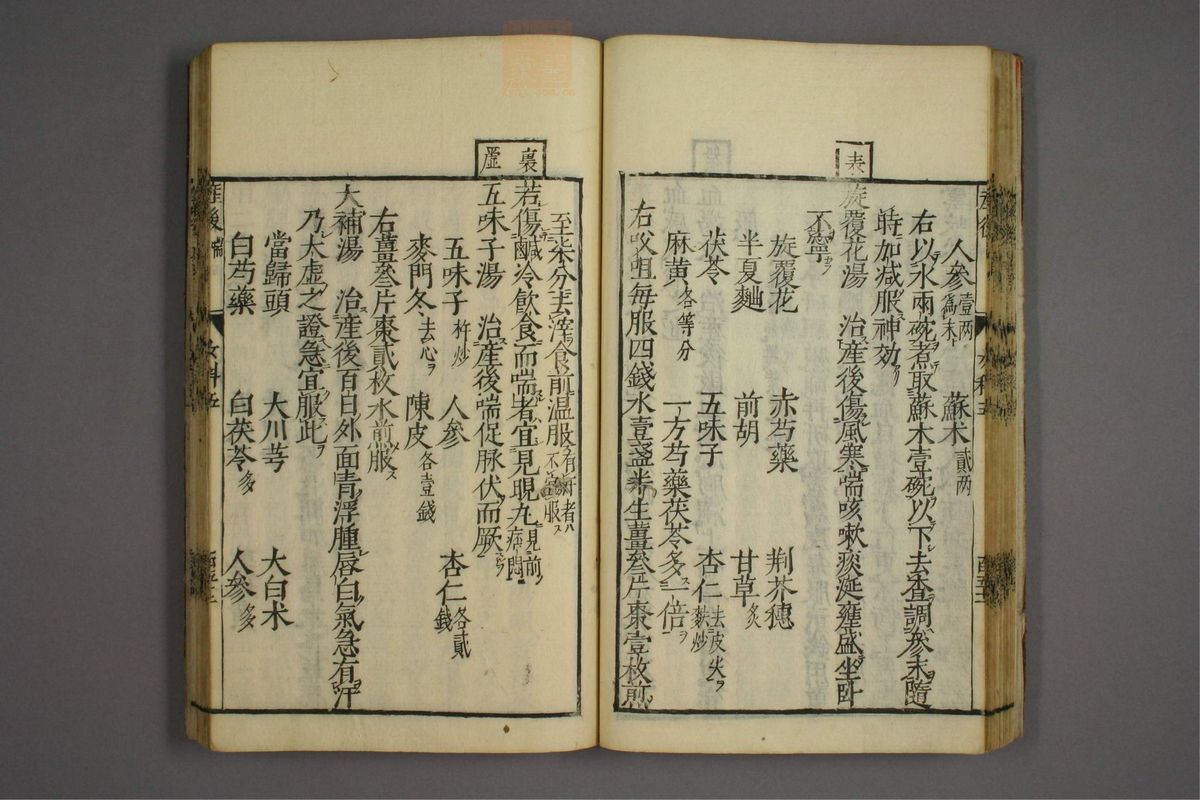 人參壹兩為末 蘇木貳兩
右以水兩碗煮取蘇木壹碗以下去査調參末隨
時加减服神効
表
旋覆花湯 治産後傷風寒喘咳嗽痰涎壅盛坐卧
不寧
旋覆花 赤芍藥 荆芥穗
半夏麯 前胡 甘草炙
茯苓 五味子 杏仁去皮尖麩炒
麻黄各等分 一方芍藥茯苓多一倍
右㕮咀每服四錢水壹盞半生薑叄片棗壹枚煎
至柒分去滓食前温服有汗者不宜服
裏 虛
若傷鹹冷飲食而喘者宜見晛丸見前痛門
五味子湯 治産後喘促脉伏而厥
五味子杵炒 人參 杏仁各貳錢
麥門冬去心 陳皮各壹錢
右薑叄片棗貳枚水煎服
大補湯 治産後百日外面青浮腫唇白氣急有汗
乃大虛之證急宜服此
當歸頭 大川芎 大白术
白芍藥 白茯苓多 人參多
産後喘 女科五